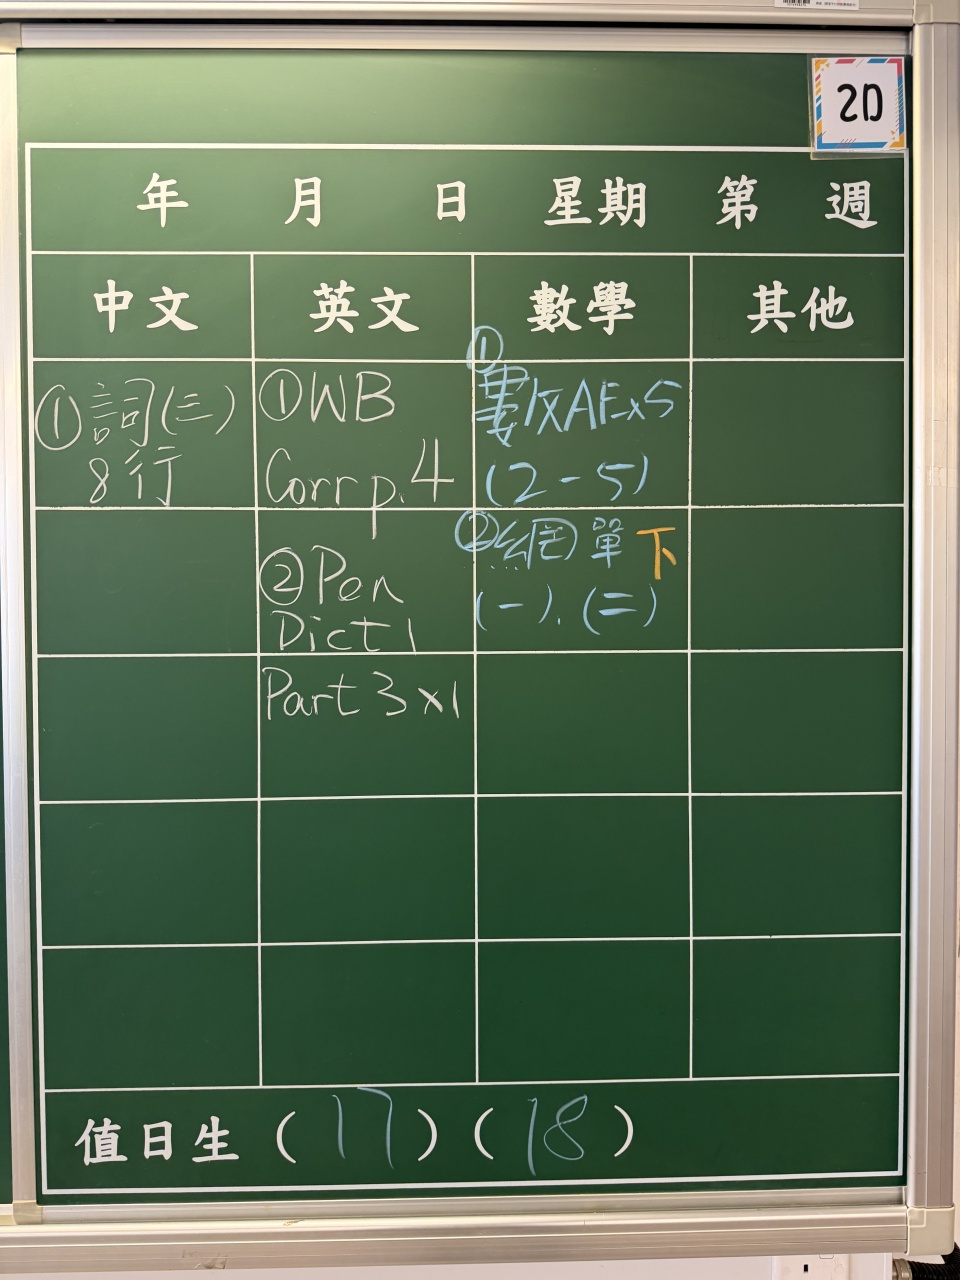 2D
年 月 日 星期 第 週
中文 英文 數學 其他
①詞(三)
8行
①WB
Corr p.4
②Pen
Dict 1
Part 3 x1
①
AE x5
(2-5)
②網單下
(一).(二)
值日生 (17) (18)